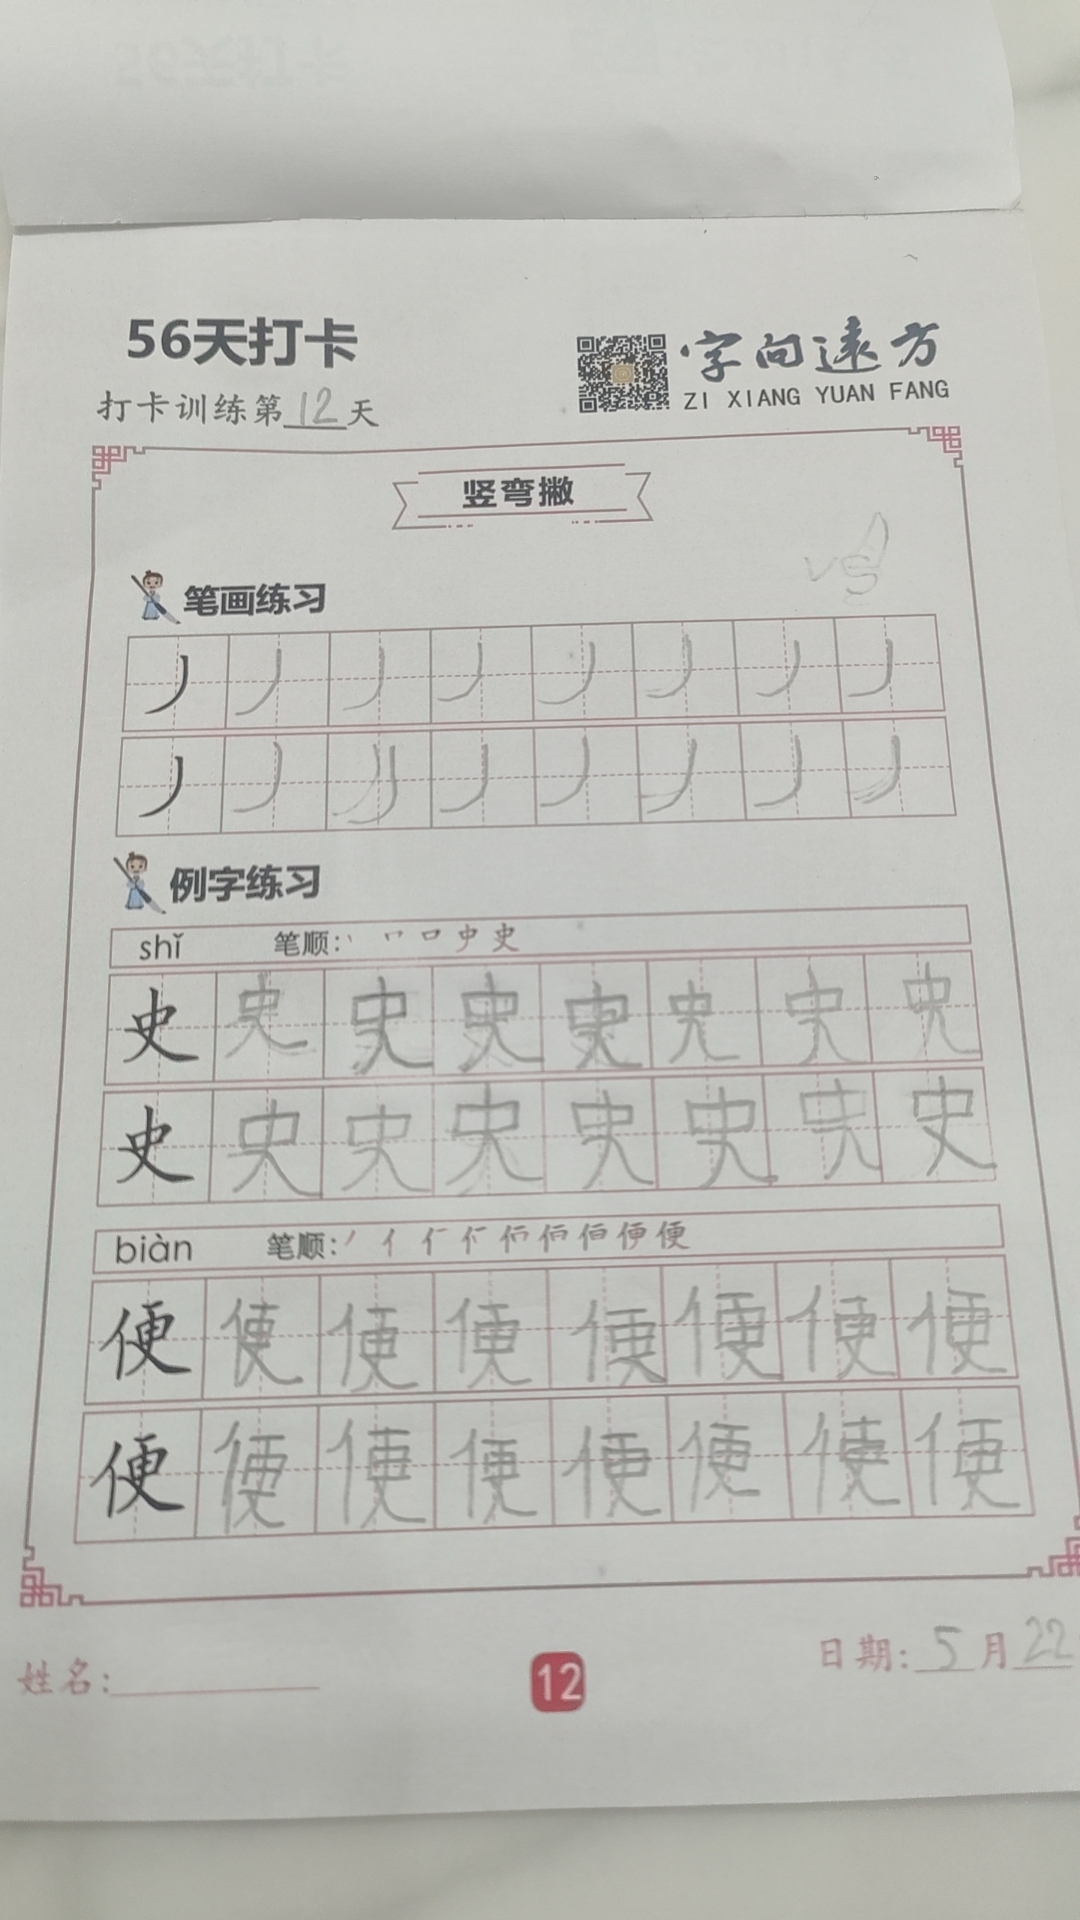 56天打卡
字向远方
ZI XIANG YUAN FANG
打卡训练第12天
竖弯撇
笔画练习
丿丿丿丿丿丿丿丿
丿丿丿丿丿丿丿丿
例字练习
shǐ 笔顺:
史史史史史史史史
史史史史史史史史
biàn 笔顺:
便便便便便便便便
便便便便便便便便
姓名:
12
日期:5月22